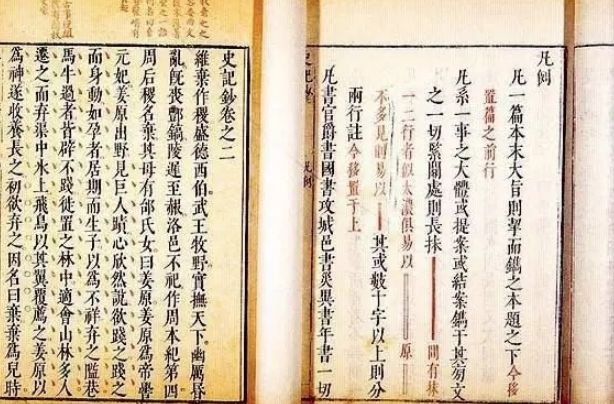 凡例
凡一篇本末大旨則挈而鐫之本題之下今移
置篇之前行
凡系一事之大體或提案或結案鐫于其旁文
之一切緊關處則長抹 間有抹
一二行者似太濃俱易以 原
不多見則易以 其或數十字以上則分
兩行註今移置于上
凡書官爵書國書攻城邑書災異書年書一切
史記鈔卷之二
維棄作稷盛德西伯武王牧野實撫天下幽厲昏
亂旣喪酆鎬陵遲至赧洛邑不祀作周本紀第四
周后稷名棄其母有邰氏女曰姜原姜原爲帝嚳
元妃姜原出野見巨人蹟心欣然說欲踐之踐之
而身動如孕者居期而生子以爲不祥弃之隘巷
馬牛過者皆辟不踐徙置之林中適會山林多人
遷之而弃渠中氷上飛鳥以其翼覆薦之姜原以
爲神遂收養長之初欲弃之因名曰棄棄爲兒時